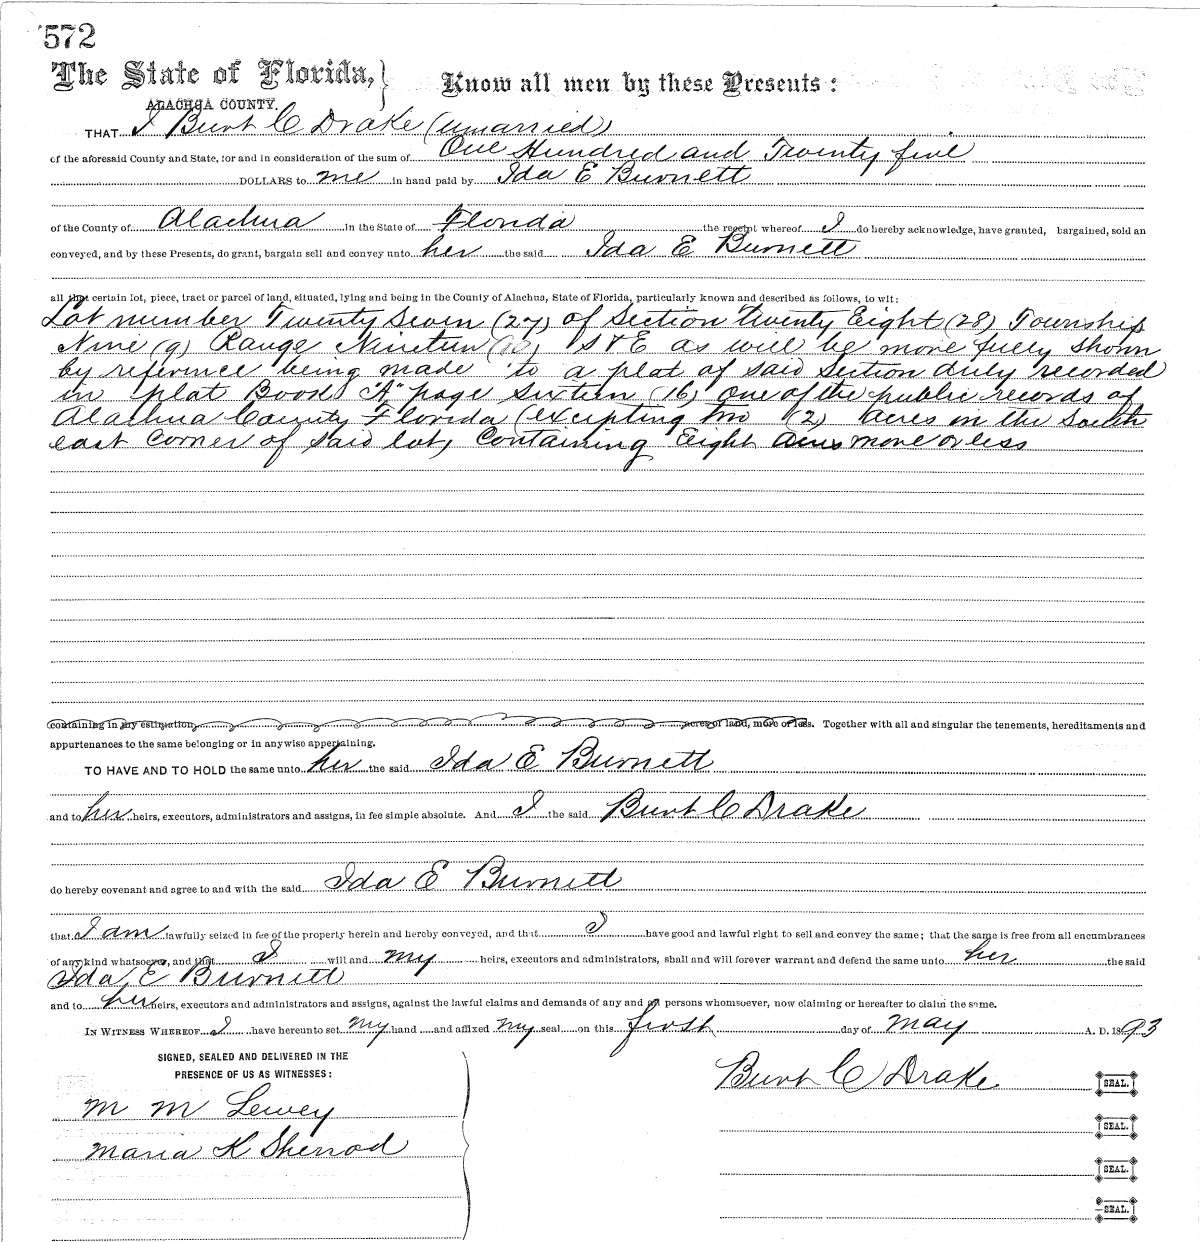 572
The State of Florida, } Know all men by these Presents:
ALACHUA COUNTY.
THAT I Burt C Drake (unmarried)
of the aforesaid County and State, for and in consideration of the sum of One Hundred and Twenty five
DOLLARS to me in hand paid by Ida E Burnett
of the County of Alachua in the State of Florida the receipt whereof I do hereby acknowledge, have granted, bargained, sold an
conveyed, and by these Presents, do grant, bargain sell and convey unto her the said Ida E Burnett
all that certain lot, piece, tract or parcel of land, situated, lying and being in the County of Alachua, State of Florida, particularly known and described as follows, to wit:
Lot number Twenty Seven (27) of Section Twenty Eight (28) Township
Nine (9) Range Nineteen S & E as will be more fully shown
by reference being made to a plat of said Section duly recorded
in plat Book "A" page Sixteen (16) one of the public records of
Alachua County Florida (excepting two (2) acres in the South
east Corner of said lot) Containing Eight acres more or less
containing in any estimation acres of land, more or less. Together with all and singular the tenements, hereditaments and
appurtenances to the same belonging or in anywise appertaining.
TO HAVE AND TO HOLD the same unto her the said Ida E Burnett
and to her heirs, executors, administrators and assigns, in fee simple absolute. And I the said Burt C Drake
do hereby covenant and agree to and with the said Ida E Burnett
that I am lawfully seized in fee of the property herein and hereby conveyed, and that I have good and lawful right to sell and convey the same; that the same is free from all encumbrances
of any kind whatsoever, and that I will and my heirs, executors and administrators, shall and will forever warrant and defend the same unto her the said
Ida E Burnett
and to her heirs, executors and administrators and assigns, against the lawful claims and demands of any and all persons whomsoever, now claiming or hereafter to claim the same.
IN WITNESS WHEREOF I have hereunto set my hand and affixed my seal on this first day of May A. D. 1893
SIGNED, SEALED AND DELIVERED IN THE
PRESENCE OF US AS WITNESSES:
Burt C Drake SEAL.
M M Lewey
SEAL.
Maria K Sherrod
SEAL.
SEAL.